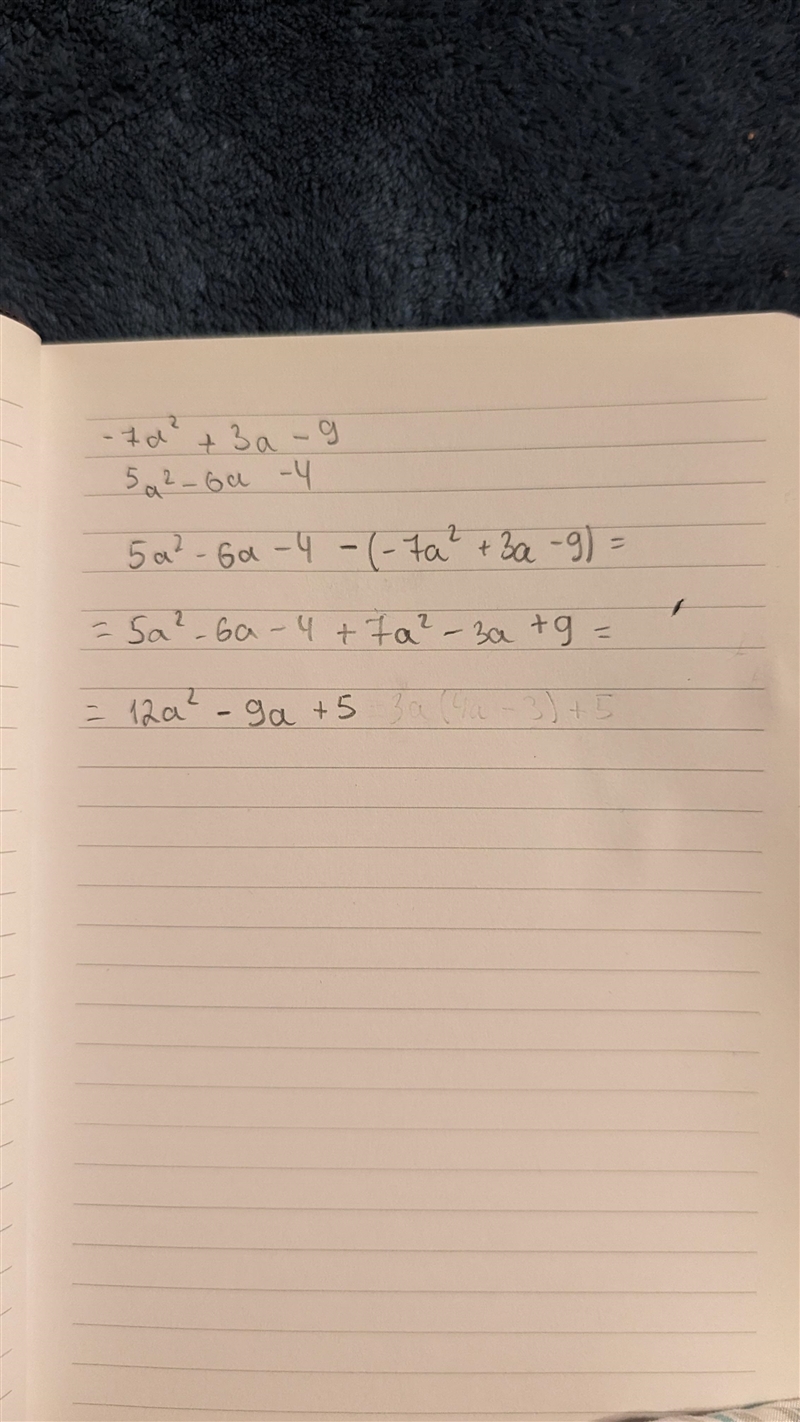 -7a² + 3a - 9
5a² - 6a - 4
5a² - 6a - 4 - (-7a² + 3a - 9) =
= 5a² - 6a - 4 + 7a² - 3a + 9 =
= 12a² - 9a + 5 3a(4a - 3) + 5